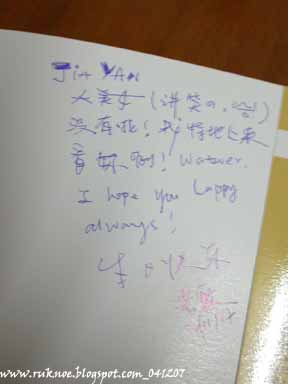 JiA YAN
人美女 (讲笑の.. )
没有啦! 我特地上来
看你啊! Watever.
I hope you happy
always!
生日快乐
www.ruknoe.blogspot.com_041207